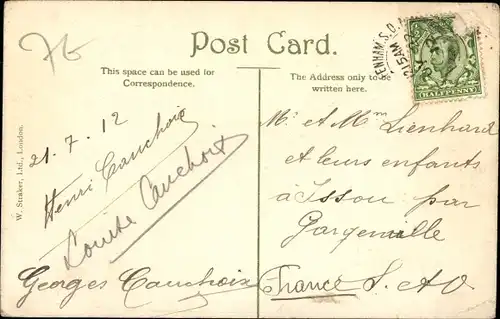 75
Post Card.
This space can be used for
Correspondence.
The Address only to be
written here.
W. Straker, Ltd., London.
21.7.12
Henri Cauchoix
Louise Cauchoix
Georges Cauchoix
ENHAM. S.O.
12.15AM
HALFPENNY
Mr et Mm Lienhard
et leurs enfants
à Issou par
Gargenville
France S. & O